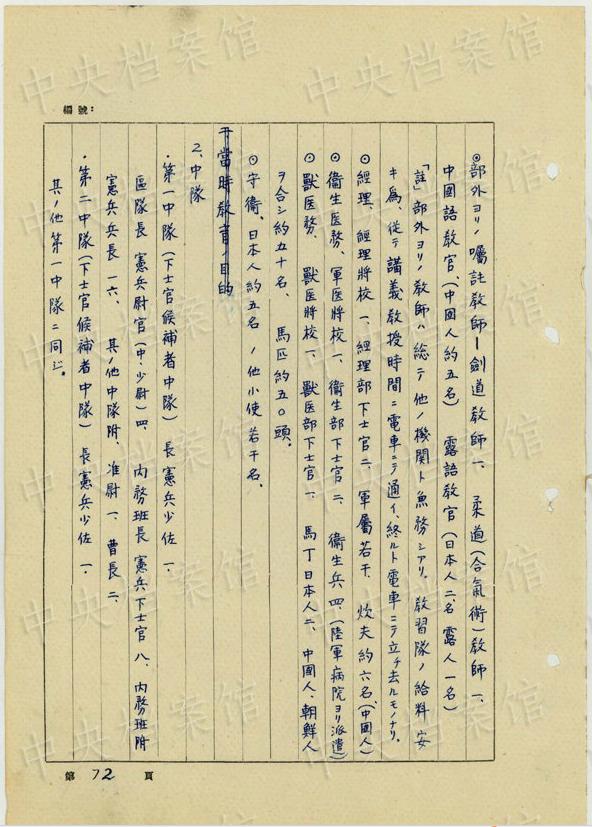 編號：
◎部外ヨリノ囑託教師ー劍道教師一、柔道(合氣術)教師一、
中國語教官、(中國人約五名)　露語教官(日本人二名 露人一名)
「註」部外ヨリノ教師ハ総テ他ノ機関ト兼務シアリ。教習隊ノ給料安
キ為、従テ講義教授時間ニ電車ニテ通イ、終ルト電車ニテ立チ去ルモノナリ。
◎經理、經理將校一、經理部下士官二、軍屬若干、炊夫約六名、(中國人)
◎衛生医務、軍医將校一、衛生部下士官二、衛生兵四、(陸軍病院ヨリ派遣)
◎獸医務、獸医將校一、獸医部下士官一、馬丁日本人二、中國人、朝鮮人
ヲ合シ約五十名、馬匹約五〇頭。
◎守衛、日本人約五名、ノ他小使若干名、
于當時教育ノ目的
2、中隊
・第一中隊(下士官候補者中隊)長憲兵少佐一、
區隊長 憲兵尉官(中・少尉)四、内務班長 憲兵下士官八、内務班附
憲兵兵長一六、其ノ他中隊附、准尉一、曹長二、
・第二中隊(下士官候補者中隊)長憲兵少佐一、
其ノ他第一中隊ニ同ジ。
第 72 頁
中央档案馆